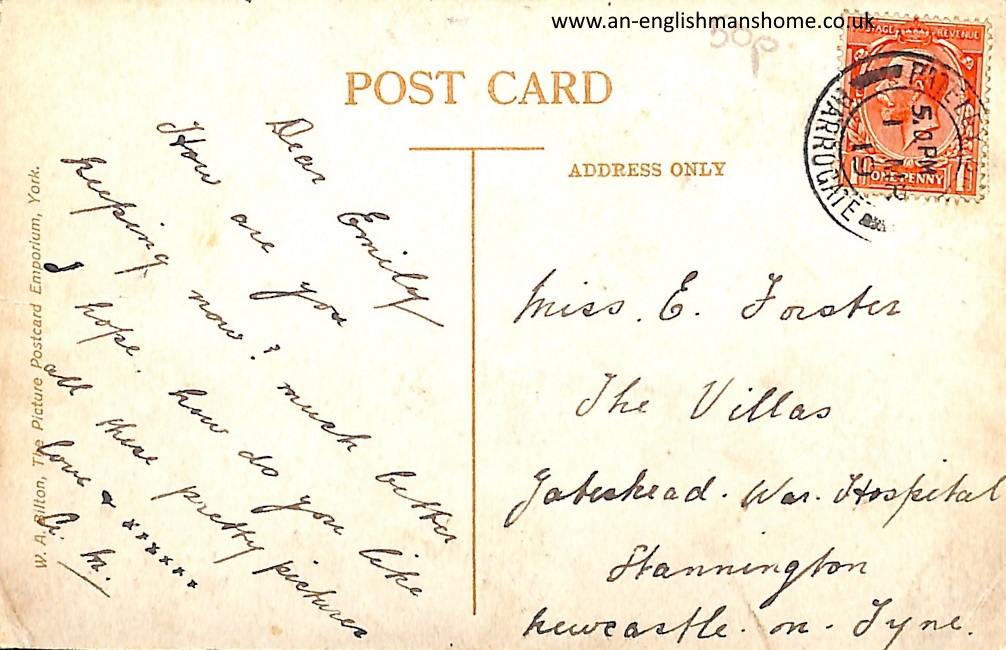 www.an-englishmanshome.co.uk
50p
POST CARD
POSTAGE REVENUE
ONE PENNY
HARROGATE
5.0 PM
1
19
ADDRESS ONLY
Dear Emily
How are you
keeping now? much better
I hope. how do you like
all these pretty pictures
love & xxxxxxx
Miss. E. Forster
The Villas
Gateshead. War. Hospital
Stannington
Newcastle. on. Tyne.
W. A. Pilton, The Picture Postcard Emporium, York.